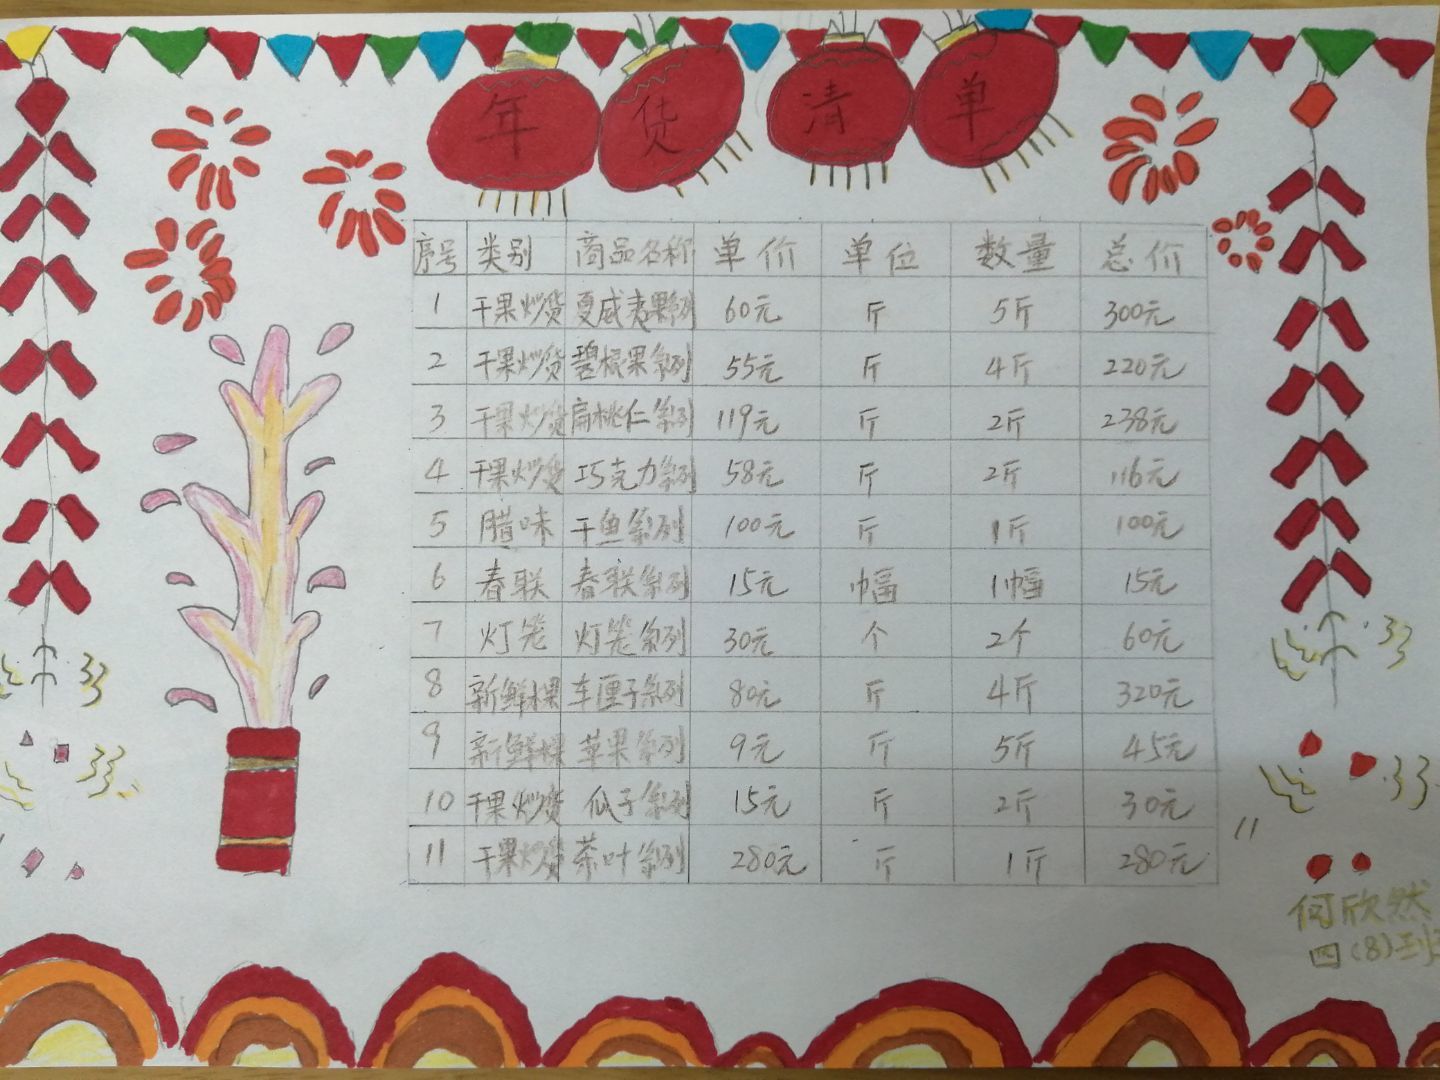 年货清单
序号 类别 商品名称 单价 单位 数量 总价
1 干果炒货 夏威夷果系列 60元 斤 5斤 300元
2 干果炒货 碧根果系列 55元 斤 4斤 220元
3 干果炒货 扁桃仁系列 119元 斤 2斤 238元
4 干果炒货 巧克力系列 58元 斤 2斤 116元
5 腊味 干鱼系列 100元 斤 1斤 100元
6 春联 春联系列 15元 幅 1幅 15元
7 灯笼 灯笼系列 30元 个 2个 60元
8 新鲜水果 车厘子系列 80元 斤 4斤 320元
9 新鲜水果 苹果系列 9元 斤 5斤 45元
10 干果炒货 瓜子系列 15元 斤 2斤 30元
11 干果炒货 茶叶系列 280元 斤 1斤 280元
何欣然
四(8)班